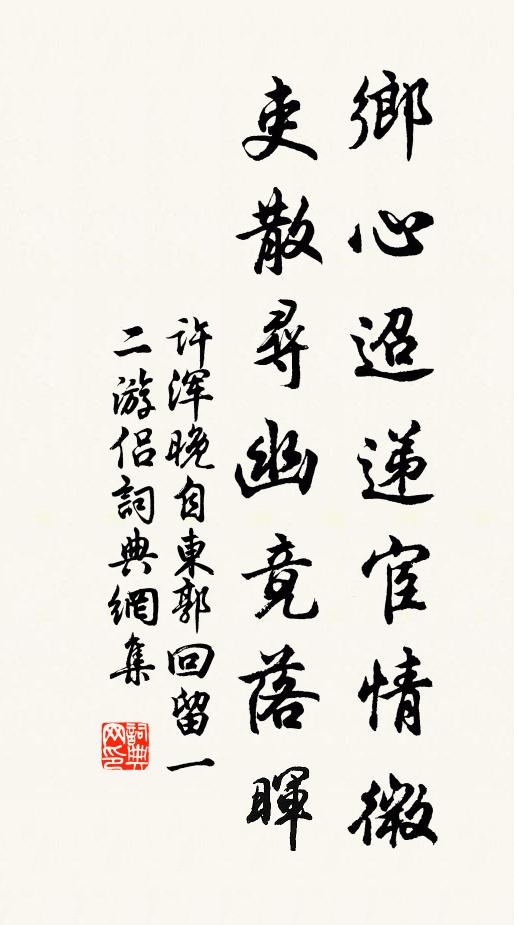 鄉心迢递宦情微
吏散尋幽竟落暉
许渾晚自東郭回留一
二游侣詞典網集
詞典网印